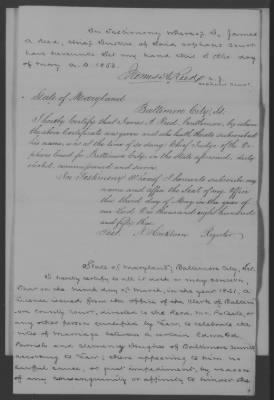 In Testimony whereof I, James
A Reed, Chief Justice of Said orphans Court
have hereunto Set my hand this 3 the day
of May A.D. 1853.
James A Reed
State of Maryland
Baltimore City, Sct.
I hereby Certify that James A. Reed, Gentleman, by whom
the above Certificate was given and who hath thereto subscribed
his name, was at the time of so doing Chief Judge of the Or-
phans Court for Baltimore City in the State aforesaid, duly
commissioned and sworn
In Testimony Whereof I hereunto subscribe my
name and affix the Seal of my Office
this third day of May in the year of
our Lord One thousand eight hundred
and fifty three
Seal Register
State of Maryland, Baltimore City, Sct.
I hereby certify to all it doth or may concern,
That on the day of March, in the year 1821, a
License issued from the office of the Clerk of
County Court, directed to the Revd.
any other person qualified by Law, to celebrate the
rites of marriage between a certain Edward
Parrish and Clemency Hughes of Baltimore County
according to Law; there appearing to him no
lawful cause, or just impediment, by reason
of any consanguinity or affinity to hinder the